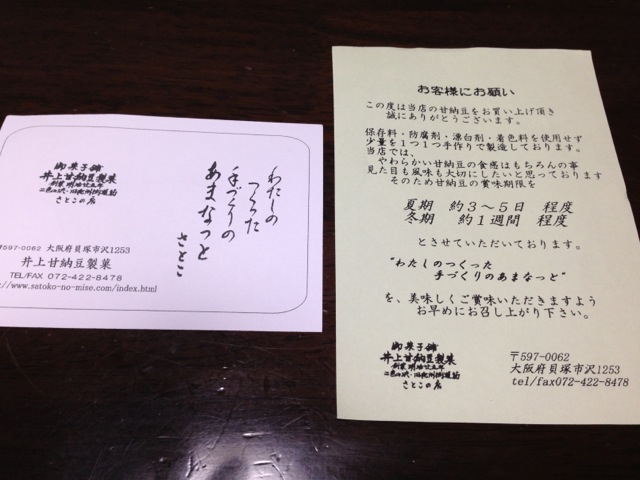 御菓子舗
井上甘納豆製菓
創業 明治廿五年
さとこの店
わたしの
つくった
手づくりの
あまなっと
さとこ
〒597-0062 大阪府貝塚市沢1253
井上甘納豆製菓
TEL/FAX 072-422-8478
://www.satoko-no-mise.com/index.html
お客様にお願い
この度は当店の甘納豆をお買い上げ頂き
誠にありがとうございます。
保存料・防腐剤・漂白剤・着色料を使用せず
少量を1つ1つ手作りで製造しております。
当店では、
やわらかい甘納豆の食感はもちろんの事
見た目も風味も大切にしたいと思っております
そのため甘納豆の賞味期限を
夏期 約3～5日 程度
冬期 約1週間 程度
とさせていただいております。
"わたしのつくった
手づくりのあまなっと"
を、美味しくご賞味いただきますよう
お早めにお召し上がり下さい。
御菓子舗
井上甘納豆製菓
創業 明治廿五年
さとこの店
〒597-0062
大阪府貝塚市沢1253
tel/fax072-422-8478